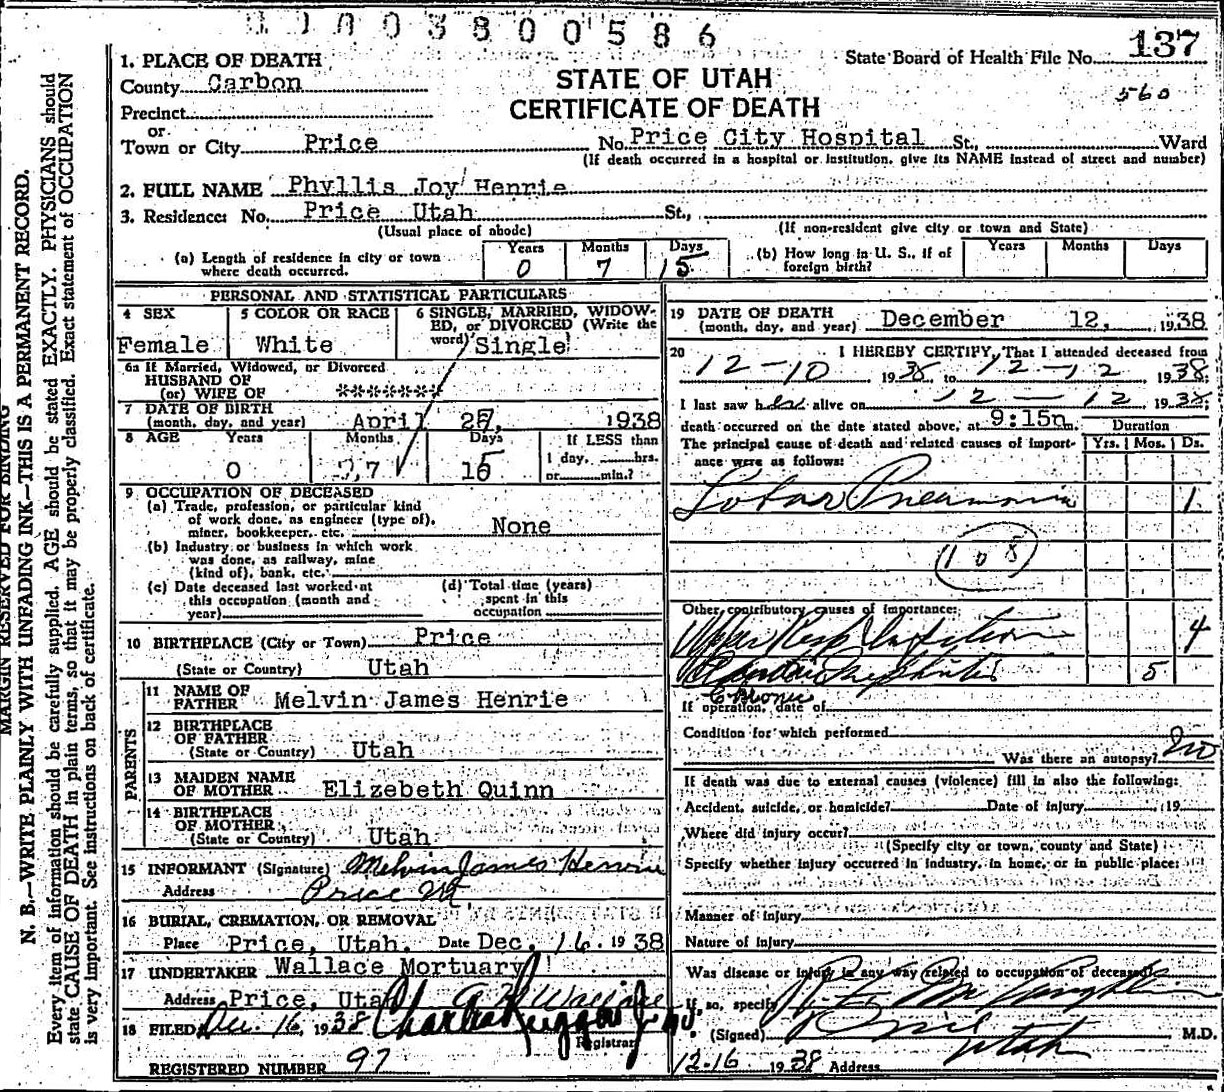 1 1 0 0 3 8 0 0 5 8 6
State Board of Health File No. 137
560
STATE OF UTAH
CERTIFICATE OF DEATH
1. PLACE OF DEATH
County Carbon
Precinct
or
Town or City Price No. Price City Hospital St., Ward
(If death occurred in a hospital or institution, give its NAME instead of street and number)
2. FULL NAME Phyllis Joy Henrie
3. Residence: No. Price Utah St.,
(Usual place of abode) (If non-resident give city or town and State)
(a) Length of residence in city or town where death occurred. Years 0 Months 7 Days 15
(b) How long in U. S., if of foreign birth? Years Months Days
PERSONAL AND STATISTICAL PARTICULARS
4 SEX Female
5 COLOR OR RACE White
6 SINGLE, MARRIED, WIDOWED, or DIVORCED (Write the word) Single
6a If Married, Widowed, or Divorced
HUSBAND OF
(or) WIFE OF *******
7 DATE OF BIRTH
(month, day, and year) April 27, 1938
8 AGE Years 0 Months 7 Days 15 If LESS than
1 day, hrs.
or min.?
9 OCCUPATION OF DECEASED
(a) Trade, profession, or particular kind
of work done, as engineer (type of),
miner, bookkeeper, etc. None
(b) Industry or business in which work
was done, as railway, mine
(kind of), bank, etc.
(c) Date deceased last worked at
this occupation (month and
year)
(d) Total time (years)
spent in this
occupation
10 BIRTHPLACE (City or Town) Price
(State or Country) Utah
PARENTS
11 NAME OF
FATHER Melvin James Henrie
12 BIRTHPLACE
OF FATHER
(State or Country) Utah
13 MAIDEN NAME
OF MOTHER Elizebeth Quinn
14 BIRTHPLACE
OF MOTHER
(State or Country) Utah
15 INFORMANT (Signature) Melvin James Henrie
Address Price Ut
16 BURIAL, CREMATION, OR REMOVAL
Place Price, Utah. Date Dec. 16. 1938
17 UNDERTAKER Wallace Mortuary
Address Price, Utah Wallace
18 FILED Dec. 16, 1938
Registrar
REGISTERED NUMBER 97
19 DATE OF DEATH
(month, day, and year) December 12, 1938
20 I HEREBY CERTIFY, That I attended deceased from
12-10 1938, to 12-12 1938
I last saw her alive on 12-12 1938,
death occurred on the date stated above, at 9:15 m.
The principal cause of death and related causes of importance were as follows: Duration Yrs. Mos. Ds.
Lobar Pneumonia 1
108
Other contributory causes of importance:
Upper Resp Infection 4
Nephritis 5
Chronic
If operation, date of
Condition for which performed
Was there an autopsy? No
If death was due to external causes (violence) fill in also the following:
Accident, suicide, or homicide? Date of injury 19
Where did injury occur?
(Specify city or town, county and State)
Specify whether injury occurred in industry, in home, or in public place:
Manner of injury
Nature of injury
Was disease or injury in any way related to occupation of deceased?
If so, specify
(Signed) M.D.
12-16 1938 Address Price Utah
MARGIN RESERVED FOR BINDING
N. B.—WRITE PLAINLY WITH UNFADING INK—THIS IS A PERMANENT RECORD.
Every item of information should be carefully supplied. AGE should be stated EXACTLY. PHYSICIANS should
state CAUSE OF DEATH in plain terms, so that it may be properly classified. Exact statement of OCCUPATION
is very important. See instructions on back of certificate.